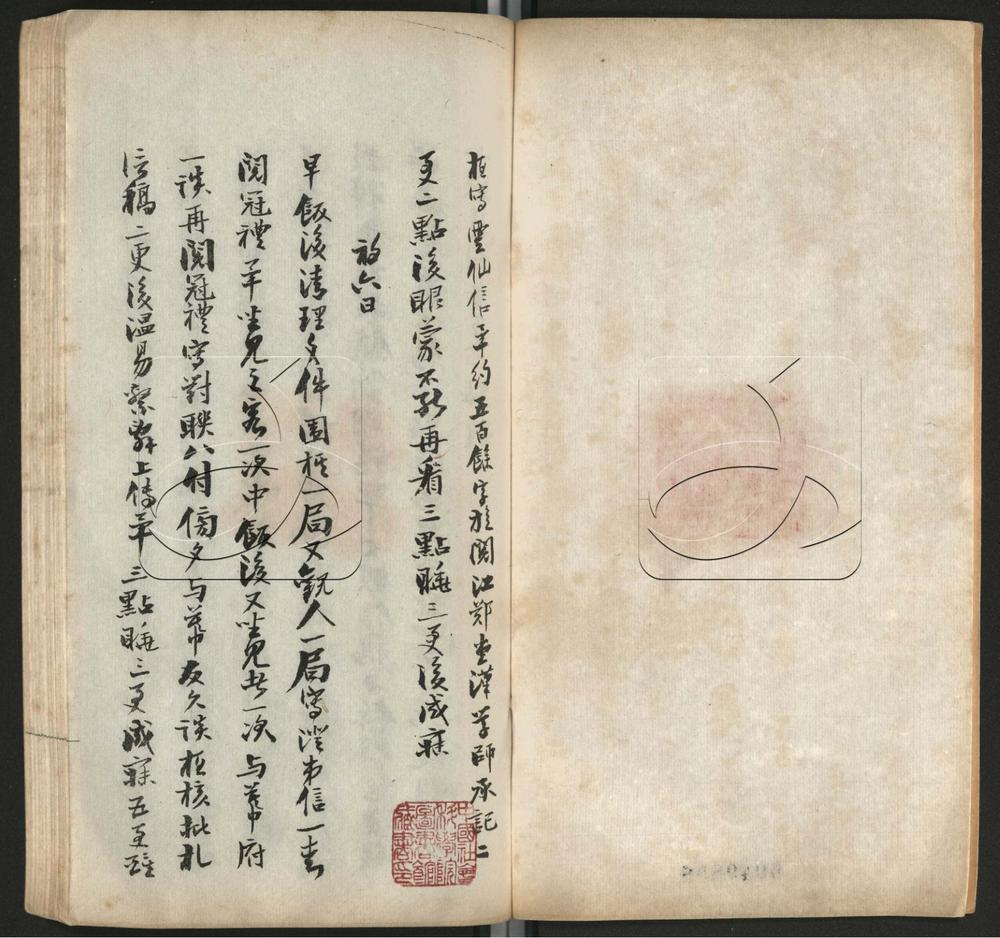 夜寫雲仙信畢約五百餘字旋閱江鄭堂漢學師承記二
更二點後眼蒙不能再看三點睡三更後成寐
初六日
早飯後清理文件圍棋一局又觀人一局寫澄弟信一書
閱冠禮畢坐見之客一次中飯後又坐見者一次與幕府
一談再閱冠禮寫對聯八付傍夕與幕友久談夜核批札
信稿二更後溫易繫辭上傳畢三點睡三更成寐五更醒